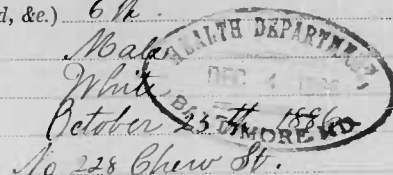 d, &c.) 6 h.
Male
White
October 25th 1886
No 228 Chew St.
HEALTH DEPARTMENT,
DEC 4 1886
BALTIMORE MD.